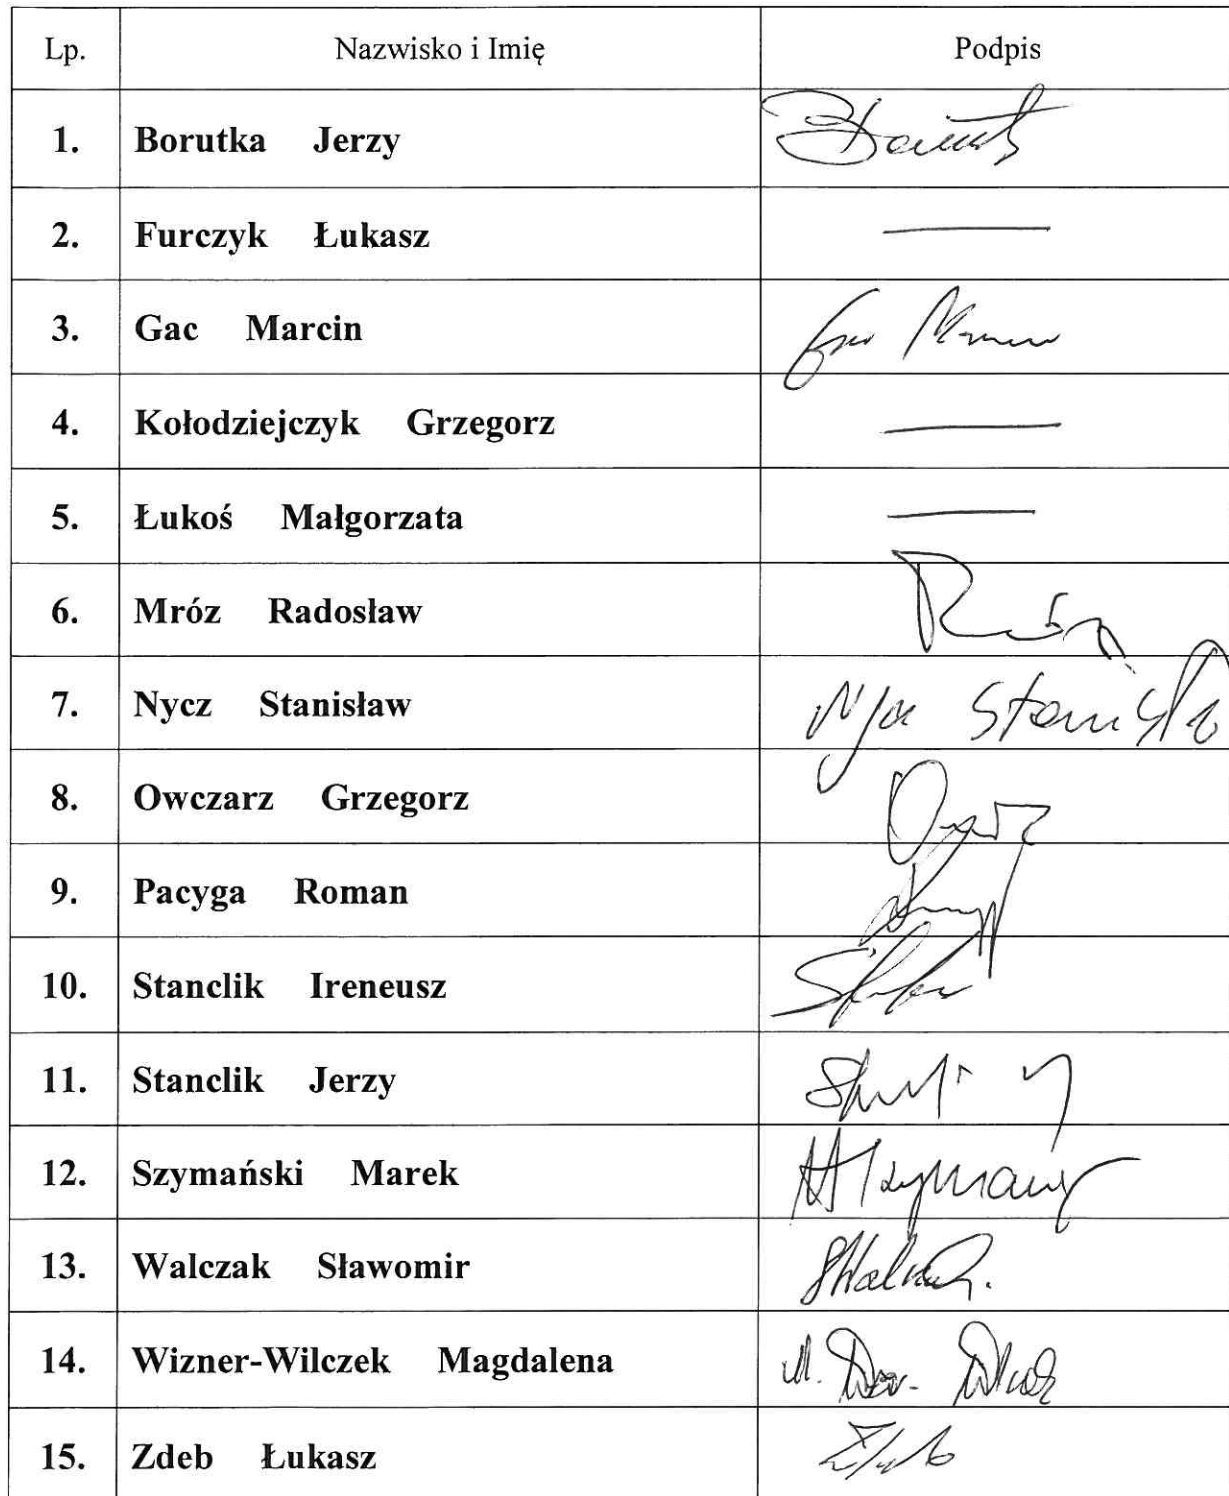 Lp. Nazwisko i Imię Podpis
1. Borutka Jerzy
2. Furczyk Łukasz —
3. Gac Marcin
4. Kołodziejczyk Grzegorz —
5. Łukoś Małgorzata —
6. Mróz Radosław
7. Nycz Stanisław
8. Owczarz Grzegorz
9. Pacyga Roman
10. Stanclik Ireneusz
11. Stanclik Jerzy
12. Szymański Marek
13. Walczak Sławomir
14. Wizner-Wilczek Magdalena
15. Zdeb Łukasz